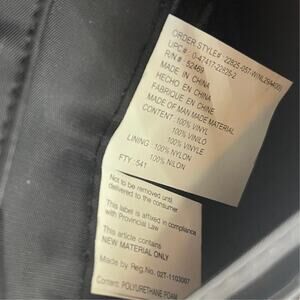 ORDER STYLE# : 22825-057-W(NL25)M(00)
UPC# : 0-47417-22825-2
R/N # : 52469
MADE IN CHINA
HECHO EN CHINA
FABRIQUE EN CHINE
MADE OF MAN MADE MATERIAL
CONTENT : 100% VINYL
100% VINILO
100% VINYLE
LINING : 100% NYLON
100% NILON
FTY : 541
Not to be removed until
delivered to the consumer
This label is affixed in compliance
with Provincial Law
This article contains
NEW MATERIAL ONLY
Made by Reg.No. 02T-1103007
Content: POLYURETHANE FOAM